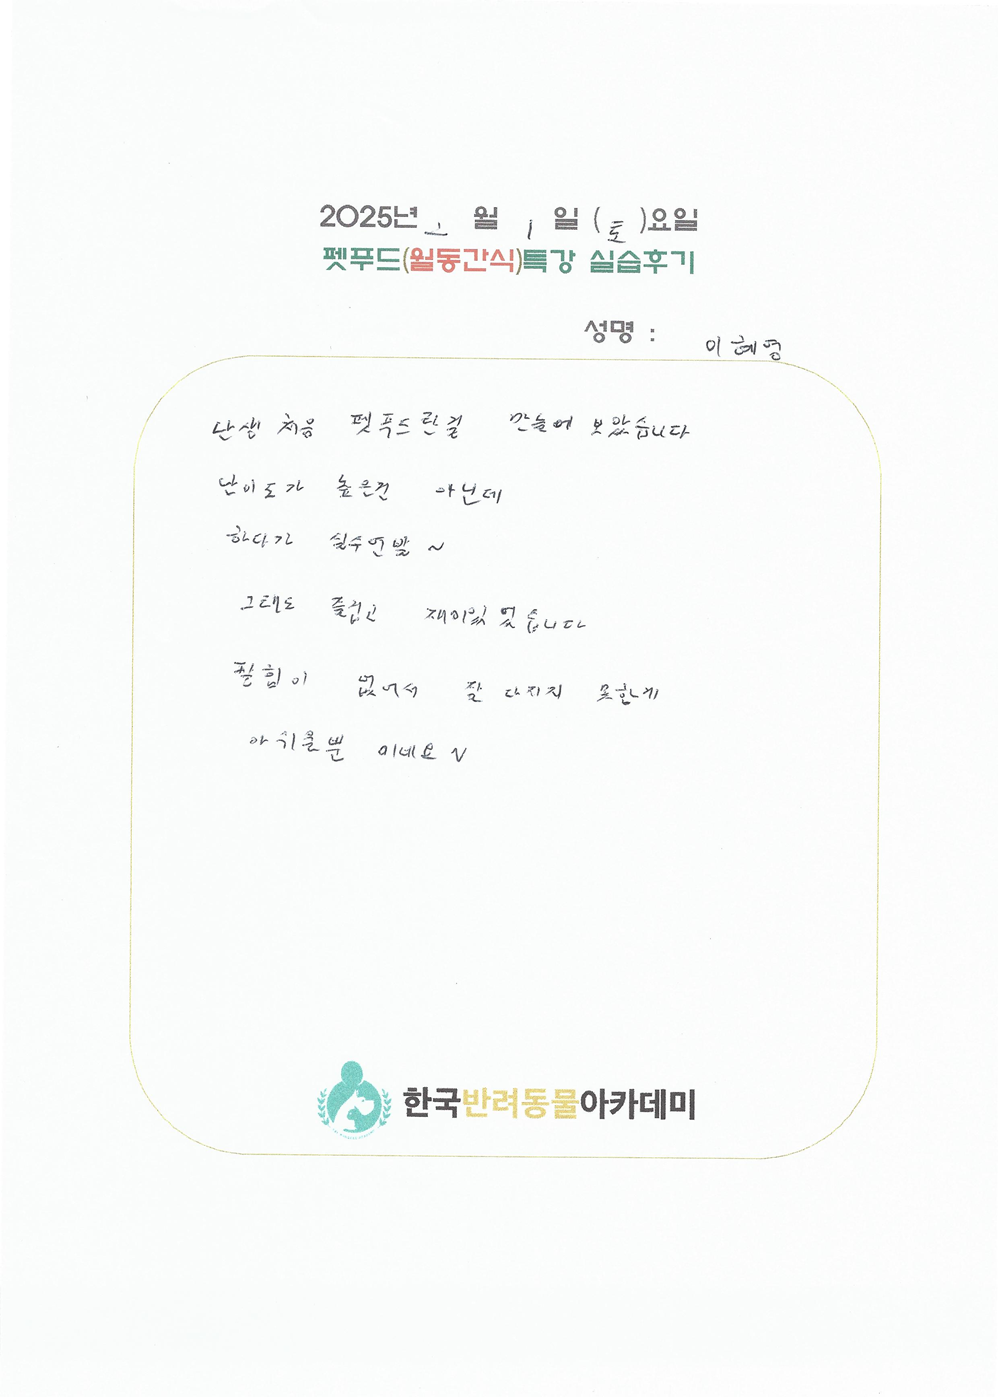 2025년 2 월 1 일 (토)요일
펫푸드(월동간식)특강 실습후기
성명 : 이혜영
난생 처음 펫푸드란걸 만늘어 보았습니다
난이도가 높은건 아닌데
하다가 실수연발 ~
그래도 즐겁고 재미있었습니다
팔힘이 없어서 잘 다지지 못한게
아쉬울뿐 이네요 ~
한국반려동물아카데미